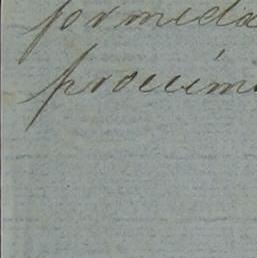 formida
proccim